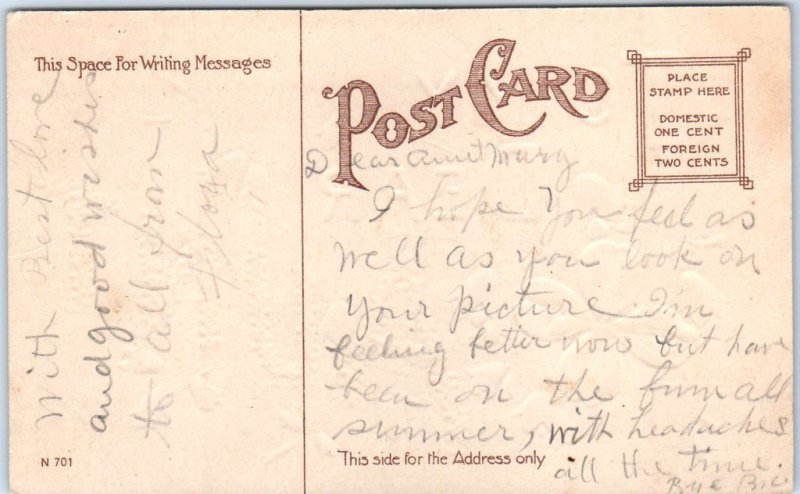 This Space For Writing Messages
POST CARD
PLACE
STAMP HERE
DOMESTIC
ONE CENT
FOREIGN
TWO CENTS
Dear Aunt Mary
I hope you feel as
well as you look on
your picture I'm
feeling better now but have
been on the bum all
summer, with headaches
all the time.
Bye Bye
This side for the Address only
With Best love
and good wishes
to all from
Flora
N 701